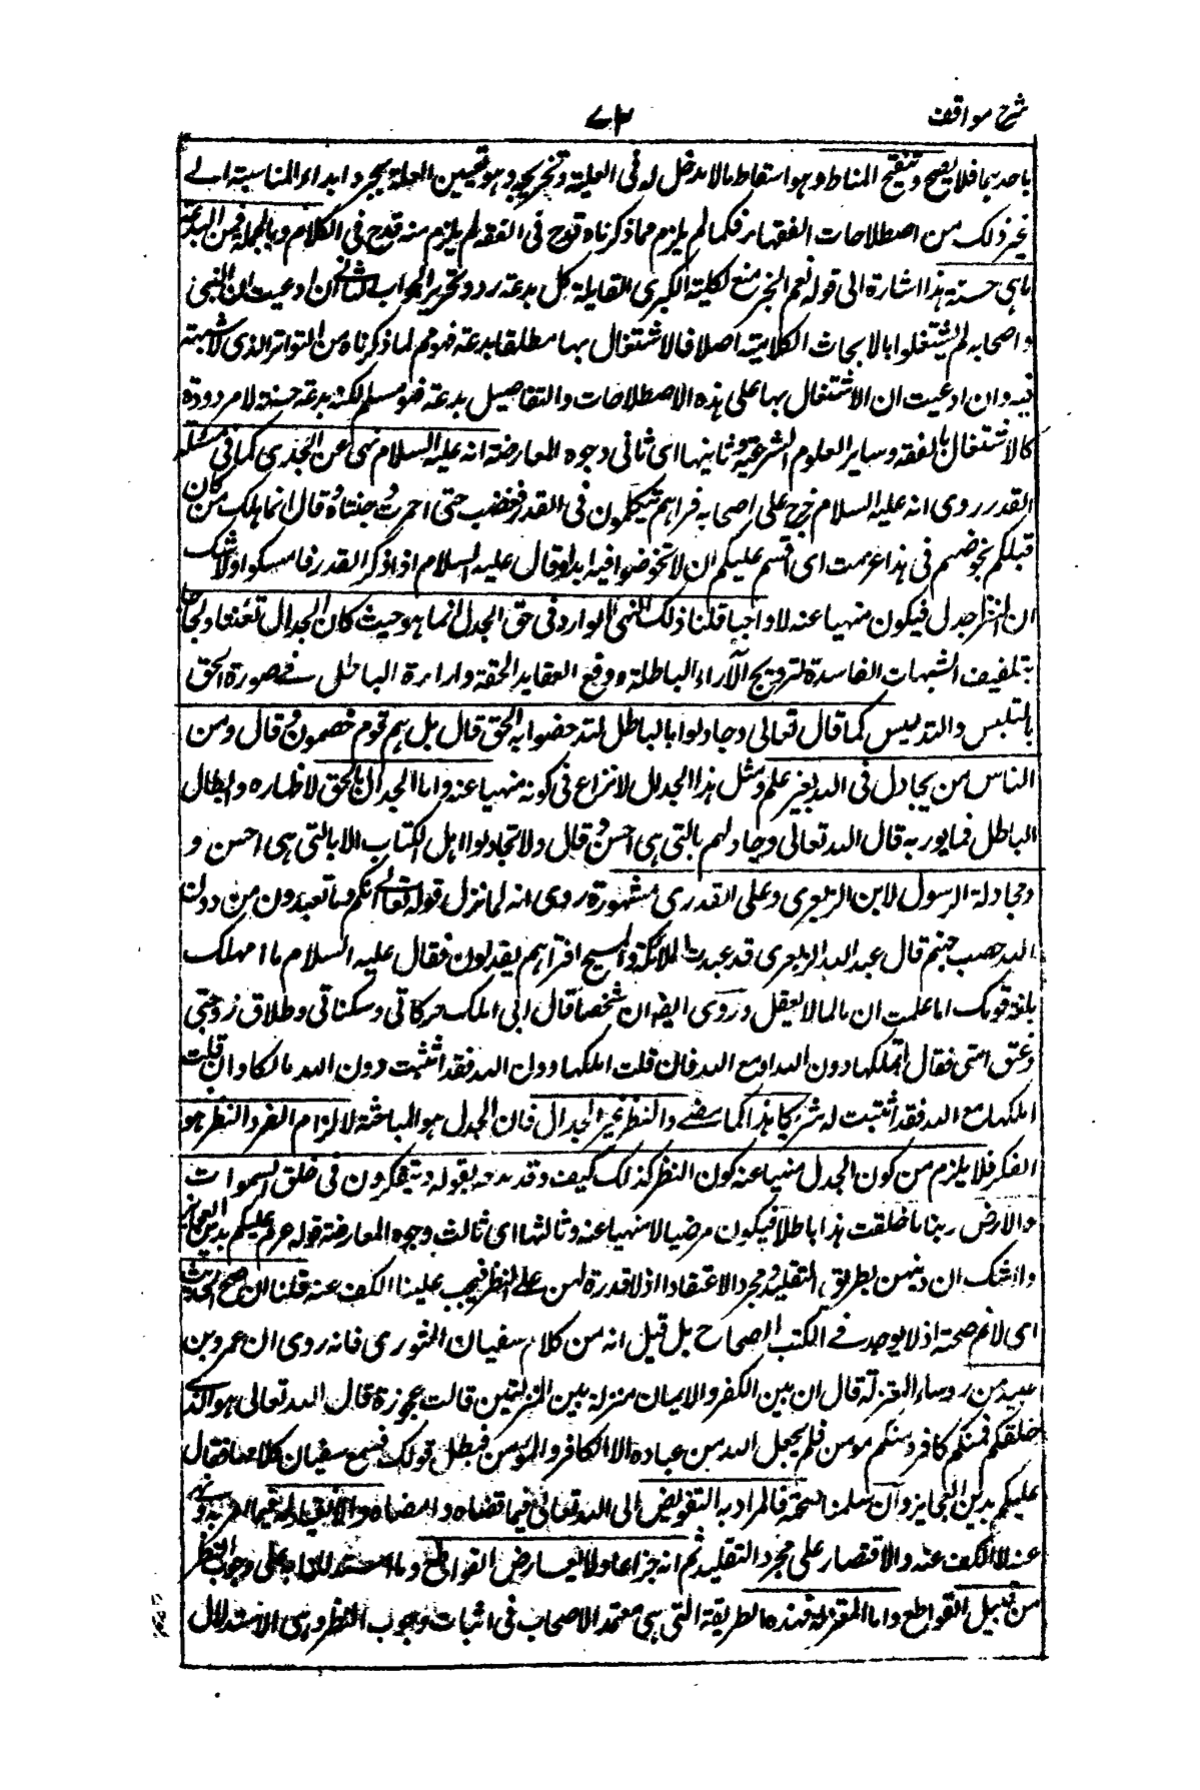 شرح مواقف
٧٣
باحدهما فلا يصح وتنقيح المناط وهو اسقاط مالا مدخل له في العلية وتخريجه وهو تعيين العلة بمجرد ابداء المناسبة الى
غير ذلك من اصطلاحات الفقهاء فكما لم يلزم مما ذكرناه قدح في الفقه لم يلزم منه قدح في الكلام وبالجملة فمن البدعة
ما هي حسنة هذا اشارة الى قوله نعم الخ منع لكلية الكبرى القايلة كل بدعة رد وتحرير الجواب الثاني ان ادعيت ان النبي
واصحابه لم يشتغلوا بالابحاث الكلامية اصلا فالاشتغال بها مطلقا بدعة فهو مم لما ذكرناه من التواتر الذي لا شبهة
فيه وان ادعيت ان الاشتغال بها على هذه الاصطلاحات والتفاصيل بدعة فهو مسلم لكنه بدعة حسنة لا مردودة
كالاشتغال بالفقه وساير العلوم الشرعية وثانيها اى ثاني وجوه المعارضة انه عليه السلام نهى عن الجدل كما في مسئلة
القدر روى انه عليه السلام خرج على اصحابه فراهم يتكلمون في القدر فغضب حتى احمرت وجنتاه وقال انما هلك من كان
قبلكم بخوضهم في هذا عزمت اى اقسم عليكم ان لا تخوضوا فيه ابدا وقال عليه السلام اذا ذكر القدر فامسكوا ولا شك
ان النظر جدل فيكون منهيا عنه لا واجبا قلنا ذلك النهى الوارد في حق الجدل انما هو حيث كان الجدال تعنتا ولجاجا
بتلفيف الشبهات الفاسدة لترويج الآراء الباطلة ودفع العقايد الحقة واراءة الباطل في صورة الحق
بالتلبيس والتدليس كما قال تعالى وجادلوا بالباطل ليدحضوا به الحق قال بل هم قوم خصمون وقال ومن
الناس من يجادل في الله بغير علم ومثل هذا الجدال لا نزاع في كونه منهيا عنه واما الجدال بالحق لاظهاره وابطال
الباطل فمامور به قال الله تعالى وجادلهم بالتي هي احسن وقال ولا تجادلوا اهل الكتاب الا بالتي هي احسن و
ومجادلة الرسول لابن الزبعرى وعلى القدرى مشهورة روى انه لما نزل قوله تعالى انكم وما تعبدون من دون
الله حصب جهنم قال عبد الله الزبعرى قد عبدت الملائكة والمسيح افتراهم يعذبون فقال عليه السلام ما اجهلك
بلغة قومك اما علمت ان ما لما لا يعقل وروى ايضا ان شخصا قال انى املك حركاتى وسكناتى وطلاق زوجتى
وعتق امتى فقال اتملكها دون الله او مع الله فان قلت املكها دون الله فقد اثبت دون الله مالكا وان قلت
املكها مع الله فقد اثبت له شريكا هذا كما مضى والنظر غير الجدال فان الجدل هو المباحثة لالزام الغير والنظر هو
الفكر فلا يلزم من كون الجدل منهيا عنه كون النظر كذلك كيف وقد مدحه بقوله ويتفكرون في خلق السموات
والارض ربنا ما خلقت هذا باطلا فيكون مرضيا لا منهيا عنه وثالثها اى ثالث وجوه المعارضة قوله عم عليكم بدين العجايز
ولا شك ان دينهن بطريق التقليد ومجرد الاعتقاد اذ لا قدرة لهن على النظر فيجب علينا الكف عنه قلنا ان صح الحديث
اى لا نم صحته اذ لا يوجد في الكتب الصحاح بل قيل انه من كلام سفيان الثورى فانه روى ان عمرو بن
عبيد من روساء المعتزلة قال ان بين الكفر والايمان منزلة بين المنزلتين قالت عجوزة قال الله تعالى هو الذى
خلقكم فمنكم كافر ومنكم مومن فلم يجعل الله من عباده الا الكافر والمؤمن فبطل قولك فسمع سفيان كلامها فقال
عليكم بدين العجايز وان سلمنا صحته فالمراد به التفويض الى الله تعالى فيما قضاه وامضاه والانقياد له فيما امر به ونهى
عنه لا الكف عنه والاقتصار على مجرد التقليد ثم انه خبر احاد لا يعارض القواطع وما استدللنا به على وجوب النظر
من قبيل القواطع واما المعتزلة فهذه الطريقة التي هي معتمد الاصحاب في اثبات وجوب النظر وهي الاستدلال